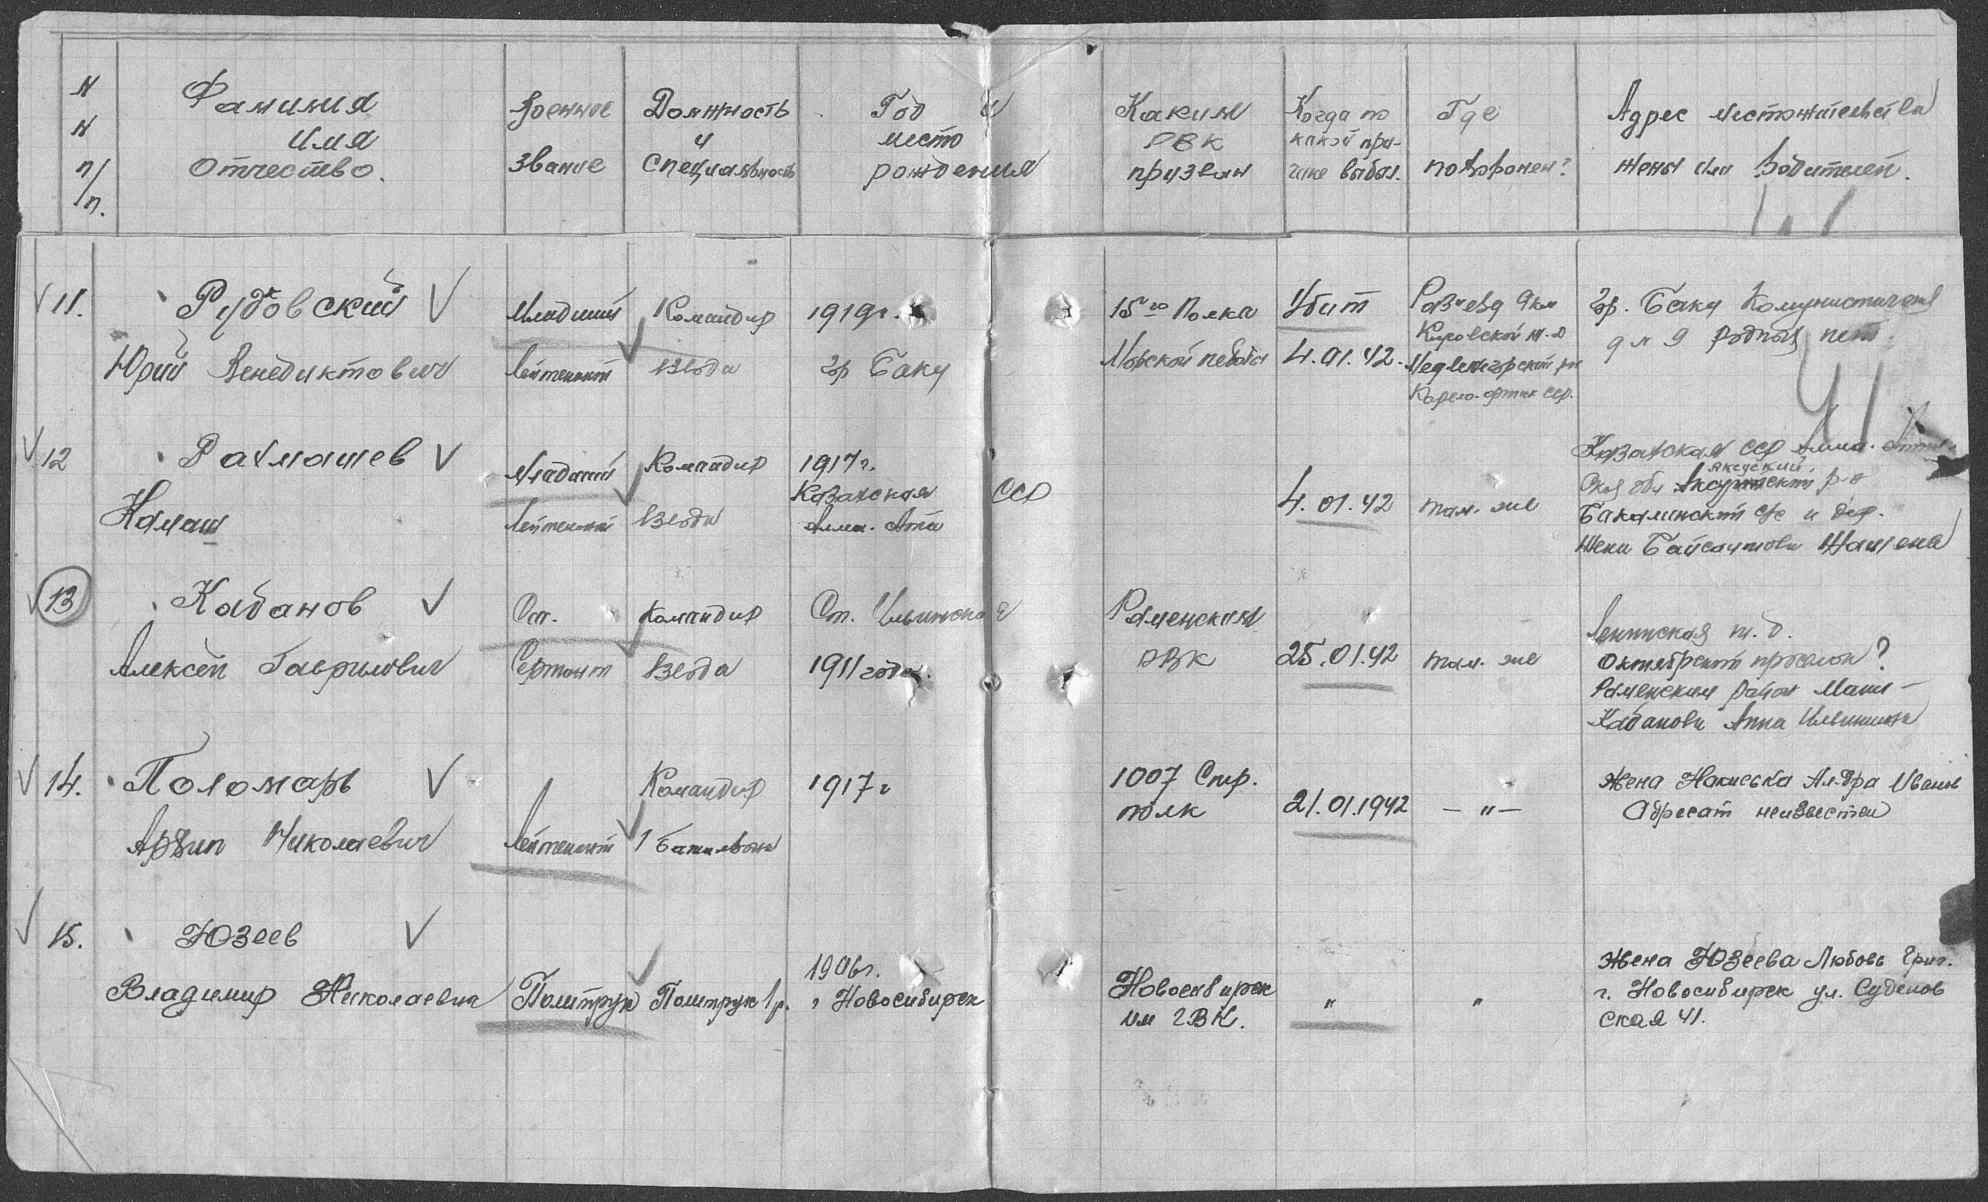 N
N
п/
/п.
Фамилия
Имя
Отчество.
Военное
звание
Должность
и
специальность
Год и
место
рождения
Каким
РВК
призван
Когда по
какой при-
чине выбыл.
Где
похоронен?
Адрес местожительства
жены или родителей.
11.
Рудковский
Юрий Венедиктович
Младший
Лейтенант
Командир
взвода
1919г.
гр Баку
15го Полка
Морской пехоты
Убит
4.01.42.
Разъезд 9км
Кировской ж.д
Медвежгорский р-н
Карело-фин ССР.
гр. Баку Комунистическая
д н 9 родных нет.
12
Рахмашев
Намаш
Младший
Лейтенант
Командир
взвода
1917г.
Казахская ССР
Алма-Ата
4.01.42
там-же
Казахская ССР Алма-Атин-
Аксуский
ская обл р-н
Бакалинский с/с и дер.
Жена
13
Кабанов
Алексей Гаврилович
Ст.
Сержант
Командир
взвода
Ст. Ильинская
1911 года.
Раменским
РВК
25.01.42
там-же
Ленинская ж.д.
Октябрский проселок?
Раменским район Мать-
Кабанова Анна Ильинична
14.
Поломарь
Архип Николаевич
Лейтенант
Командир
1 Батальона
1917г
1007 Стр.
полк
21.01.1942
— " —
Жена Ал-дра Иванов
Адресат неизвестен
15.
Юзеев
Владимир Николаевич
Политрук
Политрук 1р.
1906г.
г Новосибирск
Новосибирск
им ГВК.
"
"
Жена Юзеева Любовь Григ.
г. Новосибирск ул. Суденов
ская 41.
41